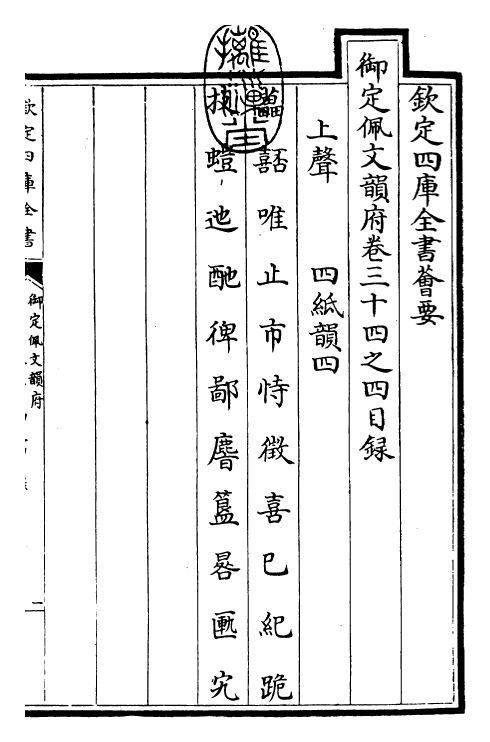 欽定四庫全書薈要
御定佩文韻府卷三十四之四目録
上聲　四紙韻四
嚭唯止市恃徵喜己紀跪
螘迆酏俾鄙麿簋晷匭宄
欽定四庫全書
御定佩文韻府